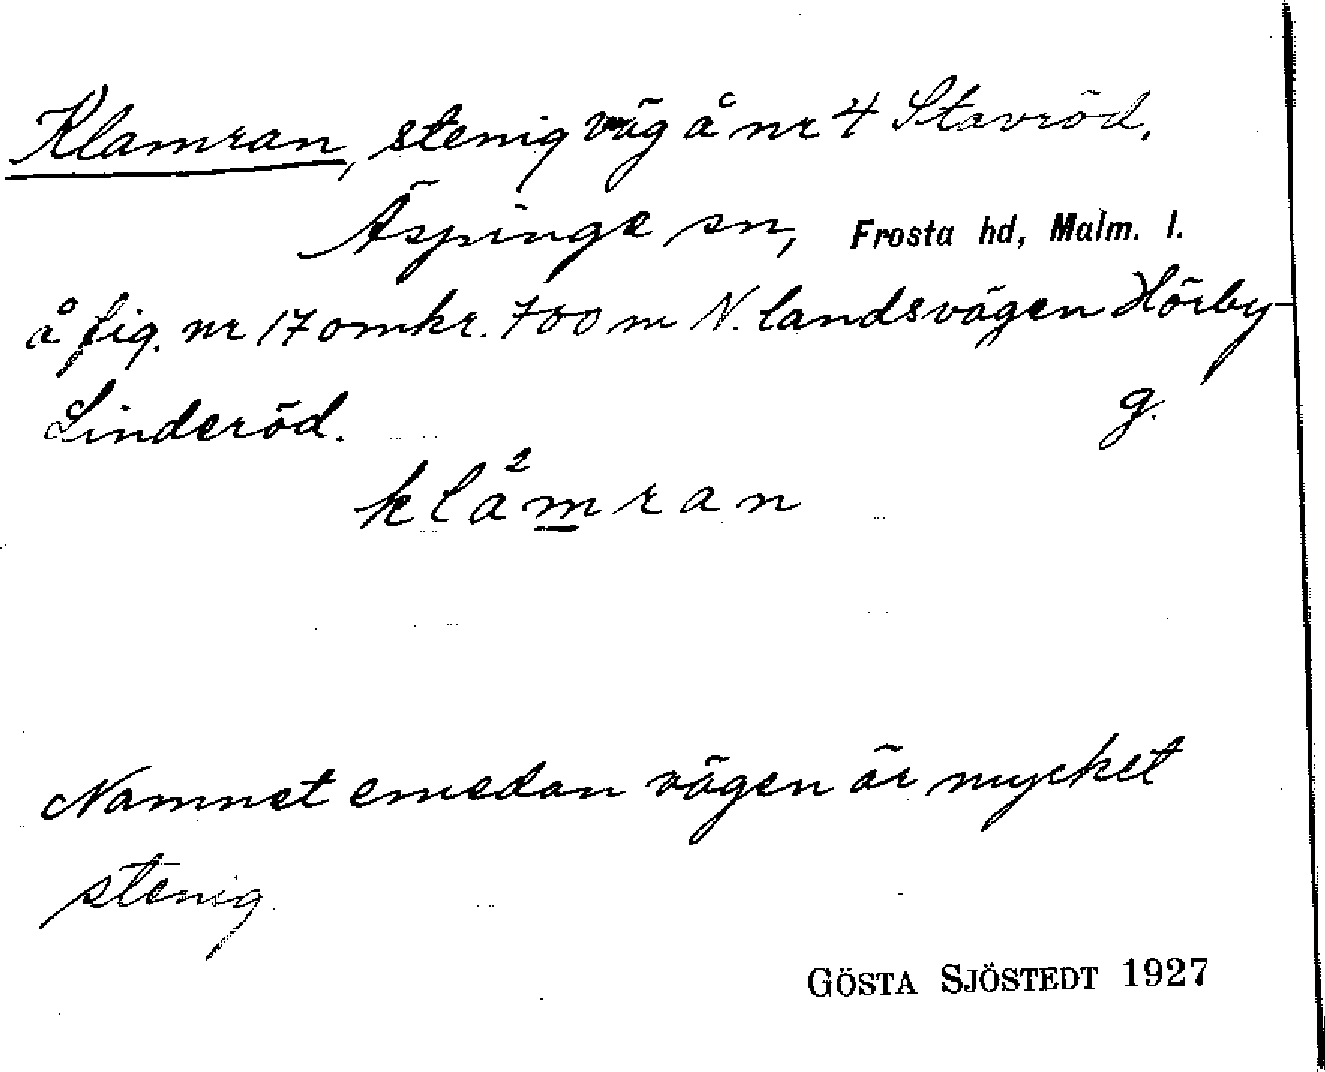 Klamran, stenig väg å nr 4 Stavröd,
Äspinge sn, Frosta hd, Malm. l.
å fig. nr 17 omkr. 700 m N. landsvägen Hörby-
Linderöd. g.
klåm̲ran
Namnet emedan vägen är mycket
stenig.
GÖSTA SJÖSTEDT 1927